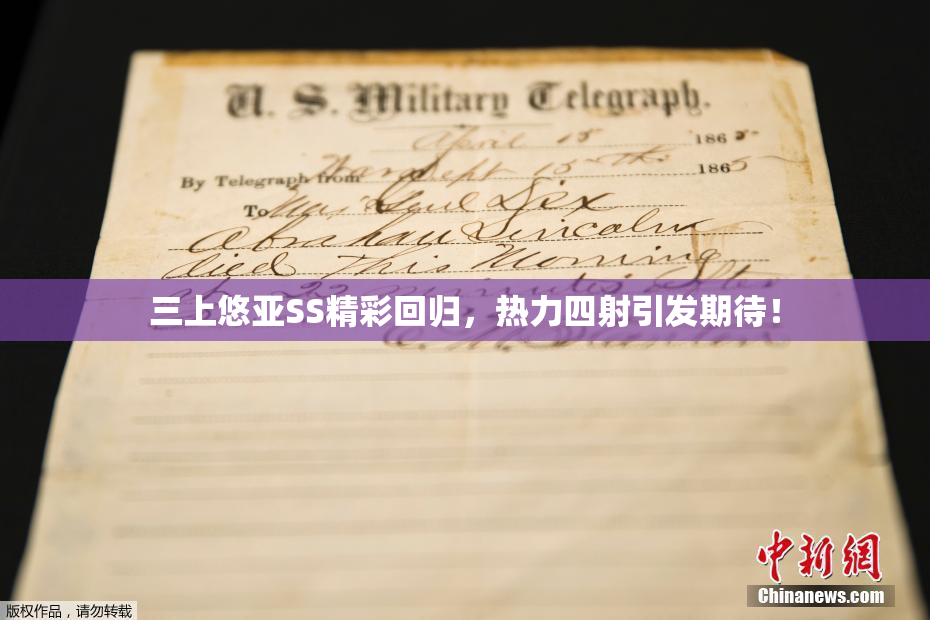 U. S. Military Telegraph.
April 15 1865
By Telegraph from War Dept 15th 1865
To Maj Genl Dix
Abraham Lincoln
died This Morning
at 22 minutes after
三上悠亚SS精彩回归，热力四射引发期待！
E. M. Stanton
中新网
Chinanews.com
版权作品，请勿转载